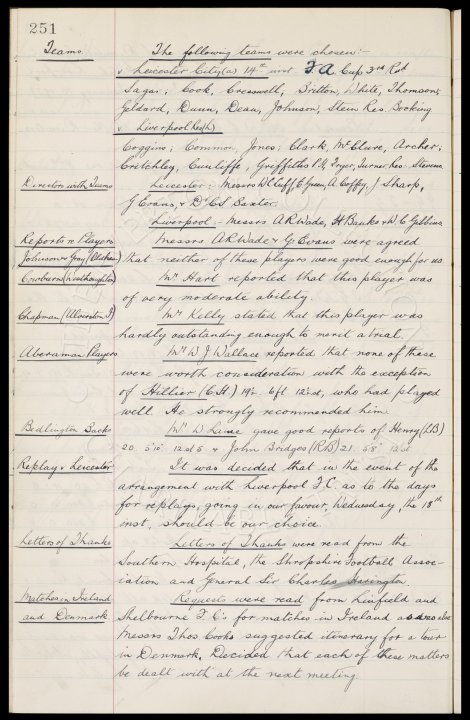 251
Teams. The following teams were chosen:-
v Leicester City (a) 14th inst. F A Cup 3rd Rd
Sagar; Cook, Cresswell, Britton, White, Thomson,
Geldard, Dunn, Dean, Johnson, Stein Res. Bocking
v. Liverpool Res(h)
Coggins; Common, Jones; Clark, McClure, Archer;
Critchley, Cunliffe, Griffiths P.H, Dryer, Turner, Res: Stevens.
Directors with Teams Leicester; Messrs W C Cuff, E Green, A Coffey, J Sharp,
G Evans, & Dr C S Baxter.
Liverpool - Messrs A R Wade, H Banks & W C Gibbins.
Reports on Players Messrs A R Wade & G Evans were agreed
Johnson & Gray (Oldham) that neither of these players were good enough for us
Cowburn (Westhoughton) Mr Hart reported that this player was
of very moderate ability.
Chapman (Ulverston T) Mr Kelly stated that this player was
hardly outstanding enough to merit a trial.
Aberaman Players Mr W J Wallace reported that none of these
were worth consideration with the exception
of Hillier (C.H.) 19½. 6ft 12st, who had played
well. He strongly recommended him.
Bedlington Backs Mr D gave good reports of Henry (LB)
20. 5'10" 12st 5 & John Bridges (RB) 21. 5'8" 12st
Replay v Leicester It was decided that in the event of the
arrangement with Liverpool F.C. as to the days
for replays, going in our favour, Wednesday, the 18th
inst, should be our choice.
Letters of Thanks Letters of Thanks were read from the
Southern Hospital, the Shropshire Football Assoc-
iation and General Sir Charles Harington.
Matches in Ireland Requests were read from Linfield and
and Denmark Shelbourne F.C's for matches in Ireland as also
Messrs Thos Cooks suggested itinerary for a tour
in Denmark. Decided that each of these matters
be dealt with at the next meeting.